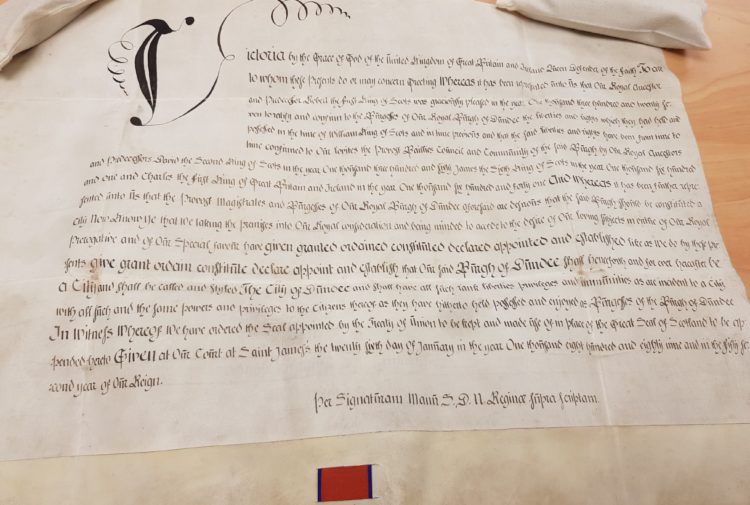 Victoria by the Grace of God of the United Kingdom of Great Britain and Ireland Queen Defender of the Faith To all
to whom these Presents do or may concern Greeting Whereas it has been represented unto Us that Our Royal Ancestor
and Predecessor Robert the First King of Scots was graciously pleased in the year One thousand three hundred and twenty se-
ven to ratify and confirm to the Burgesses of Our Royal Burgh of Dundee the liberties and rights which they had held and
possessed in the time of William King of Scots and in time previous and that the said liberties and rights have been from time to
time confirmed to Our lovites the Provost Baillies Council and Community of the said Burgh by Our Royal Ancestors
and Predecessors David the Second King of Scots in the year One thousand three hundred and sixty James the Sixth King of Scots in the year One thousand six hundred
and one and Charles the First King of Great Britain and Ireland in the year One thousand six hundred and forty one And Whereas it has been further repre-
sented unto Us that the Provost Magistrates and Burgesses of Our Royal Burgh of Dundee aforesaid are desirous that the said Burgh should be constituted a
City Now Know Ye that We taking the premises into Our Royal consideration and being minded to accede to the desire of Our loving subjects in entire of Our Royal
Prerogative and of Our Special favour have given granted ordained constituted declared appointed and established like as We do by these pre-
sents give grant ordain constitute declare appoint and establish that Our said Burgh of Dundee shall henceforth and for ever hereafter be
a City and shall be called and styled The City of Dundee and shall have all such rank liberties privileges and immunities as are incident to a City
with all such and the same powers and privileges to the Citizens thereof as they have hitherto held possessed and enjoyed as Burgesses of the Burgh of Dundee
In Witness Whereof We have ordered the Seal appointed by the Treaty of Union to be kept and made use of in place of the Great Seal of Scotland to be ap-
pended hereto Given at Our Court at Saint James's the twenty sixth day of January in the year One thousand eight hundred and eighty nine and in the fifty se-
cond year of Our Reign.
Per Signaturam Manu S. D. N. Reginæ supra scriptam